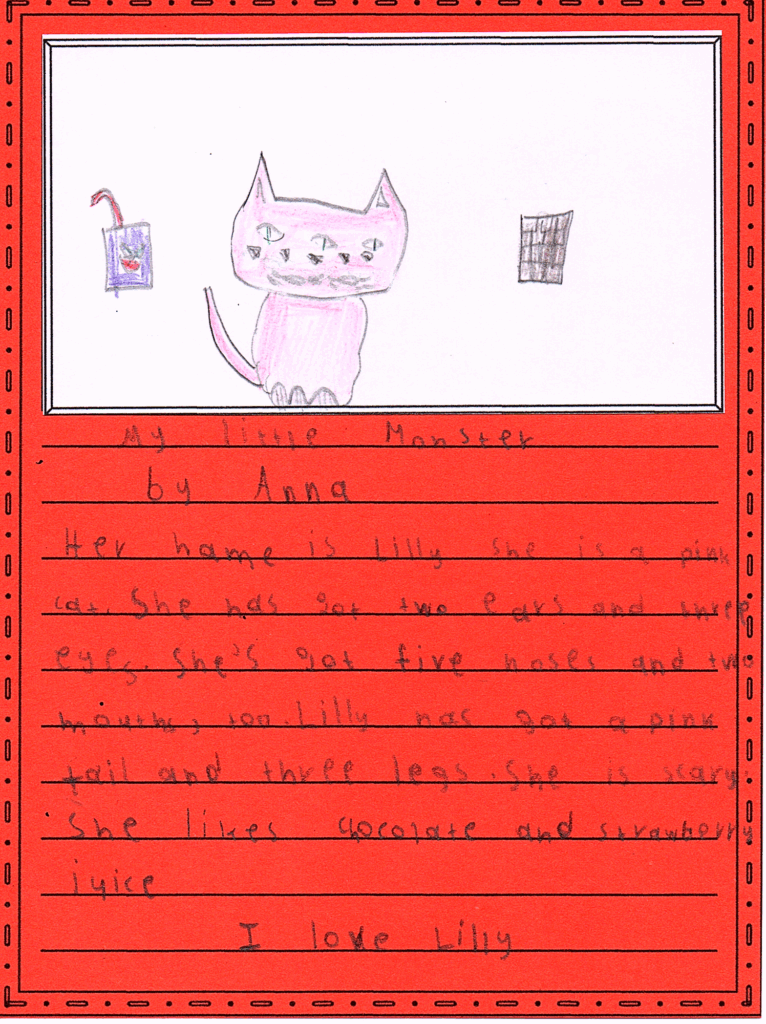 My little Monster
by Anna
Her name is Lilly She is a pink
cat. She has got two ears and three
eyes. She's got five noses and two
mouths, too. Lilly has got a pink
tail and three legs. She is scary.
She likes chocolate and strawberry
juice
I love Lilly